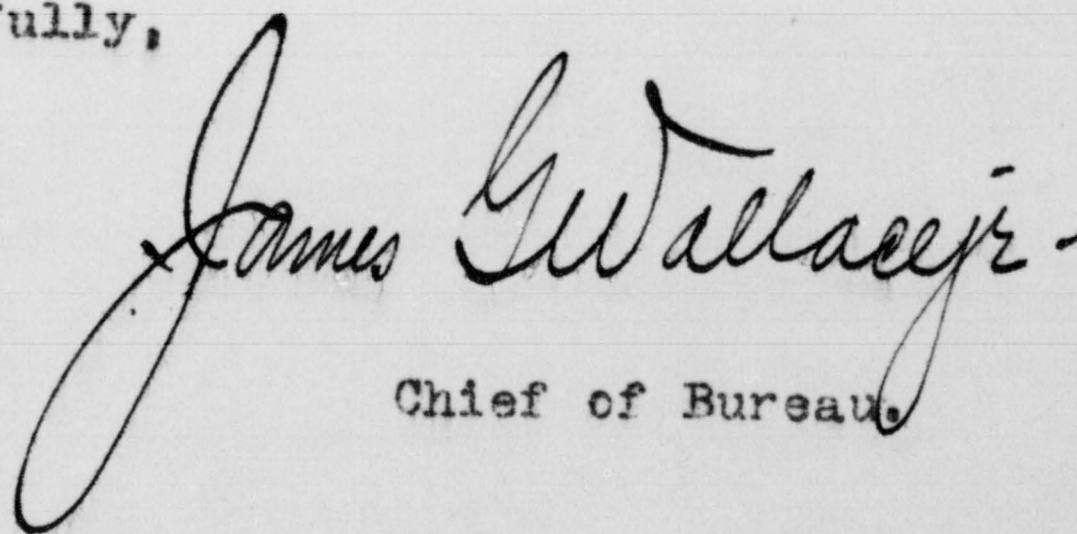 fully,
James G Wallace jr -
Chief of Bureau.